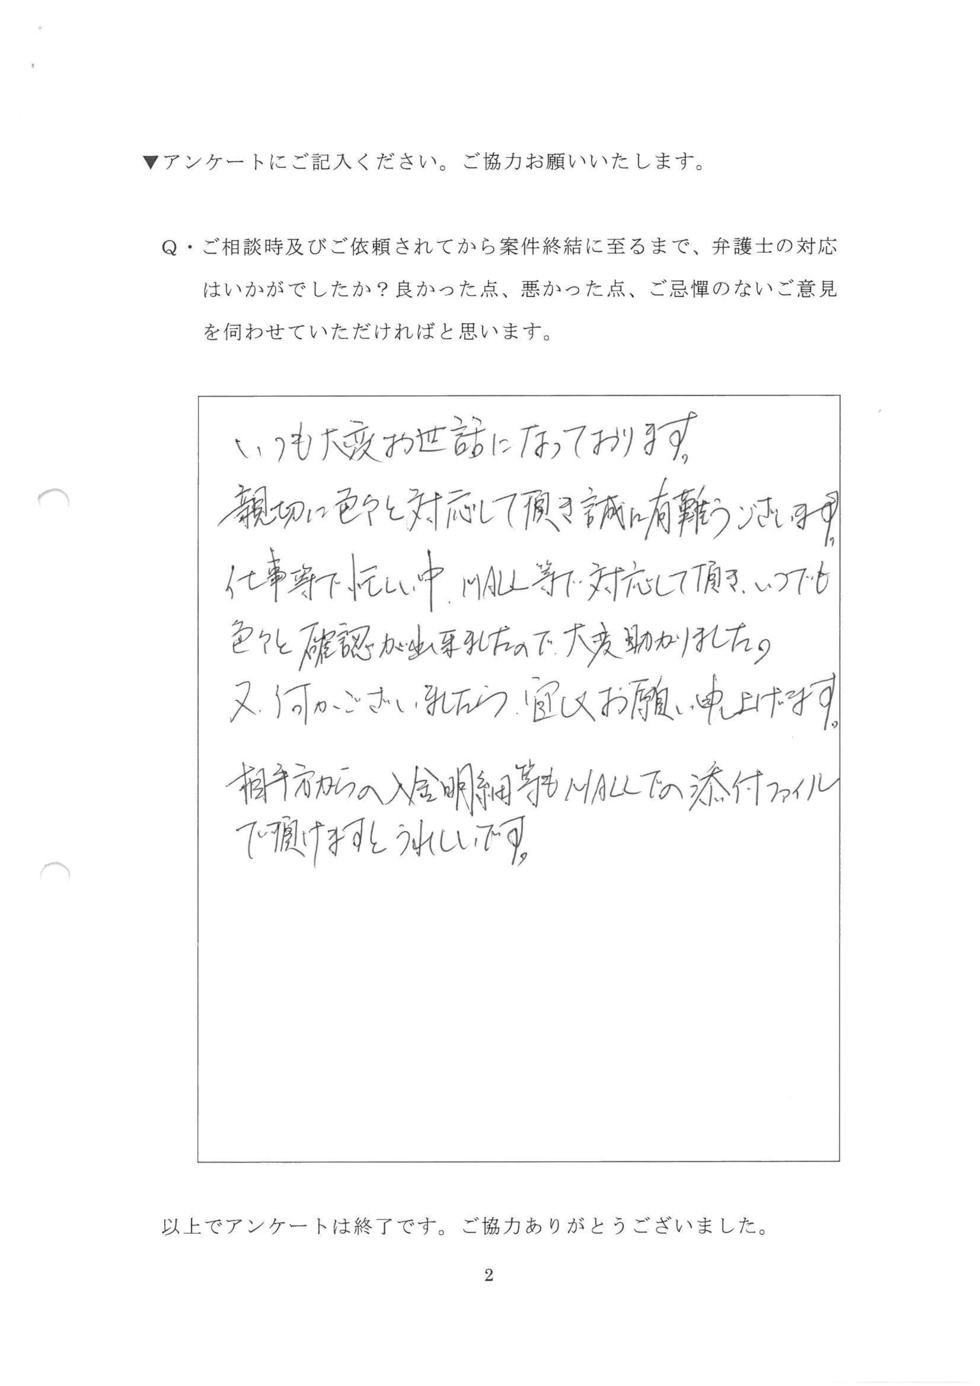 ▼アンケートにご記入ください。ご協力お願いいたします。
Q・ご相談時及びご依頼されてから案件終結に至るまで、弁護士の対応
はいかがでしたか？良かった点、悪かった点、ご忌憚のないご意見
を伺わせていただければと思います。
いつも大変お世話になっております。
親切に色々と対応して頂き誠に有難うございます。
仕事等で忙しい中、MALL等で対応して頂き、いつでも
色々と確認が出来ましたので、大変助かりました。
又、何かございましたら、宜しくお願い申し上げます。
相手方からの入金明細等もMALLでの添付ファイル
で頂けますとうれしいです。
以上でアンケートは終了です。ご協力ありがとうございました。
2